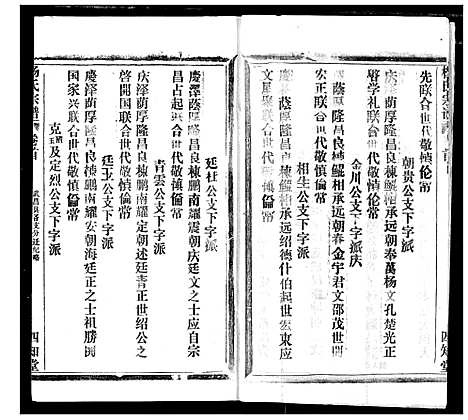 先联合世代敬慎伦常
朝贵公支下字派
慶泽荫厚隆昌良棟鯤相承远朝奉萬杨文孔楚光正
啓学礼联合世代敬慎伦常
金川公支下字派庆
慶泽荫厚隆昌良棟鯤相承远朝春金宇君文邵茂世開
宏正联合世代敬慎倫常
相生公支下字派
慶泽荫厚隆昌良棟鯤相承远绍德什伯起世宏東应
文星聚联合世代敬慎倫常
楊氏宗譜
四知堂
廷柱公支下字派
慶澤蔭厚隆昌良棟鵬南耀震朝庆廷文之士应自宗
昌占起合世代敬慎倫常
青雲公支下字派
庆泽荫厚隆昌良棟鵬南耀定朝述廷青正世绍公之
啓開国联合世代敬慎倫常
廷玉公支下字派
慶泽荫厚隆昌良栋鹏南耀安朝海廷正之士祖勝開
国家兴联合世代敬慎倫常
克明及定烈公支下字派
杨氏宗譜
四知堂